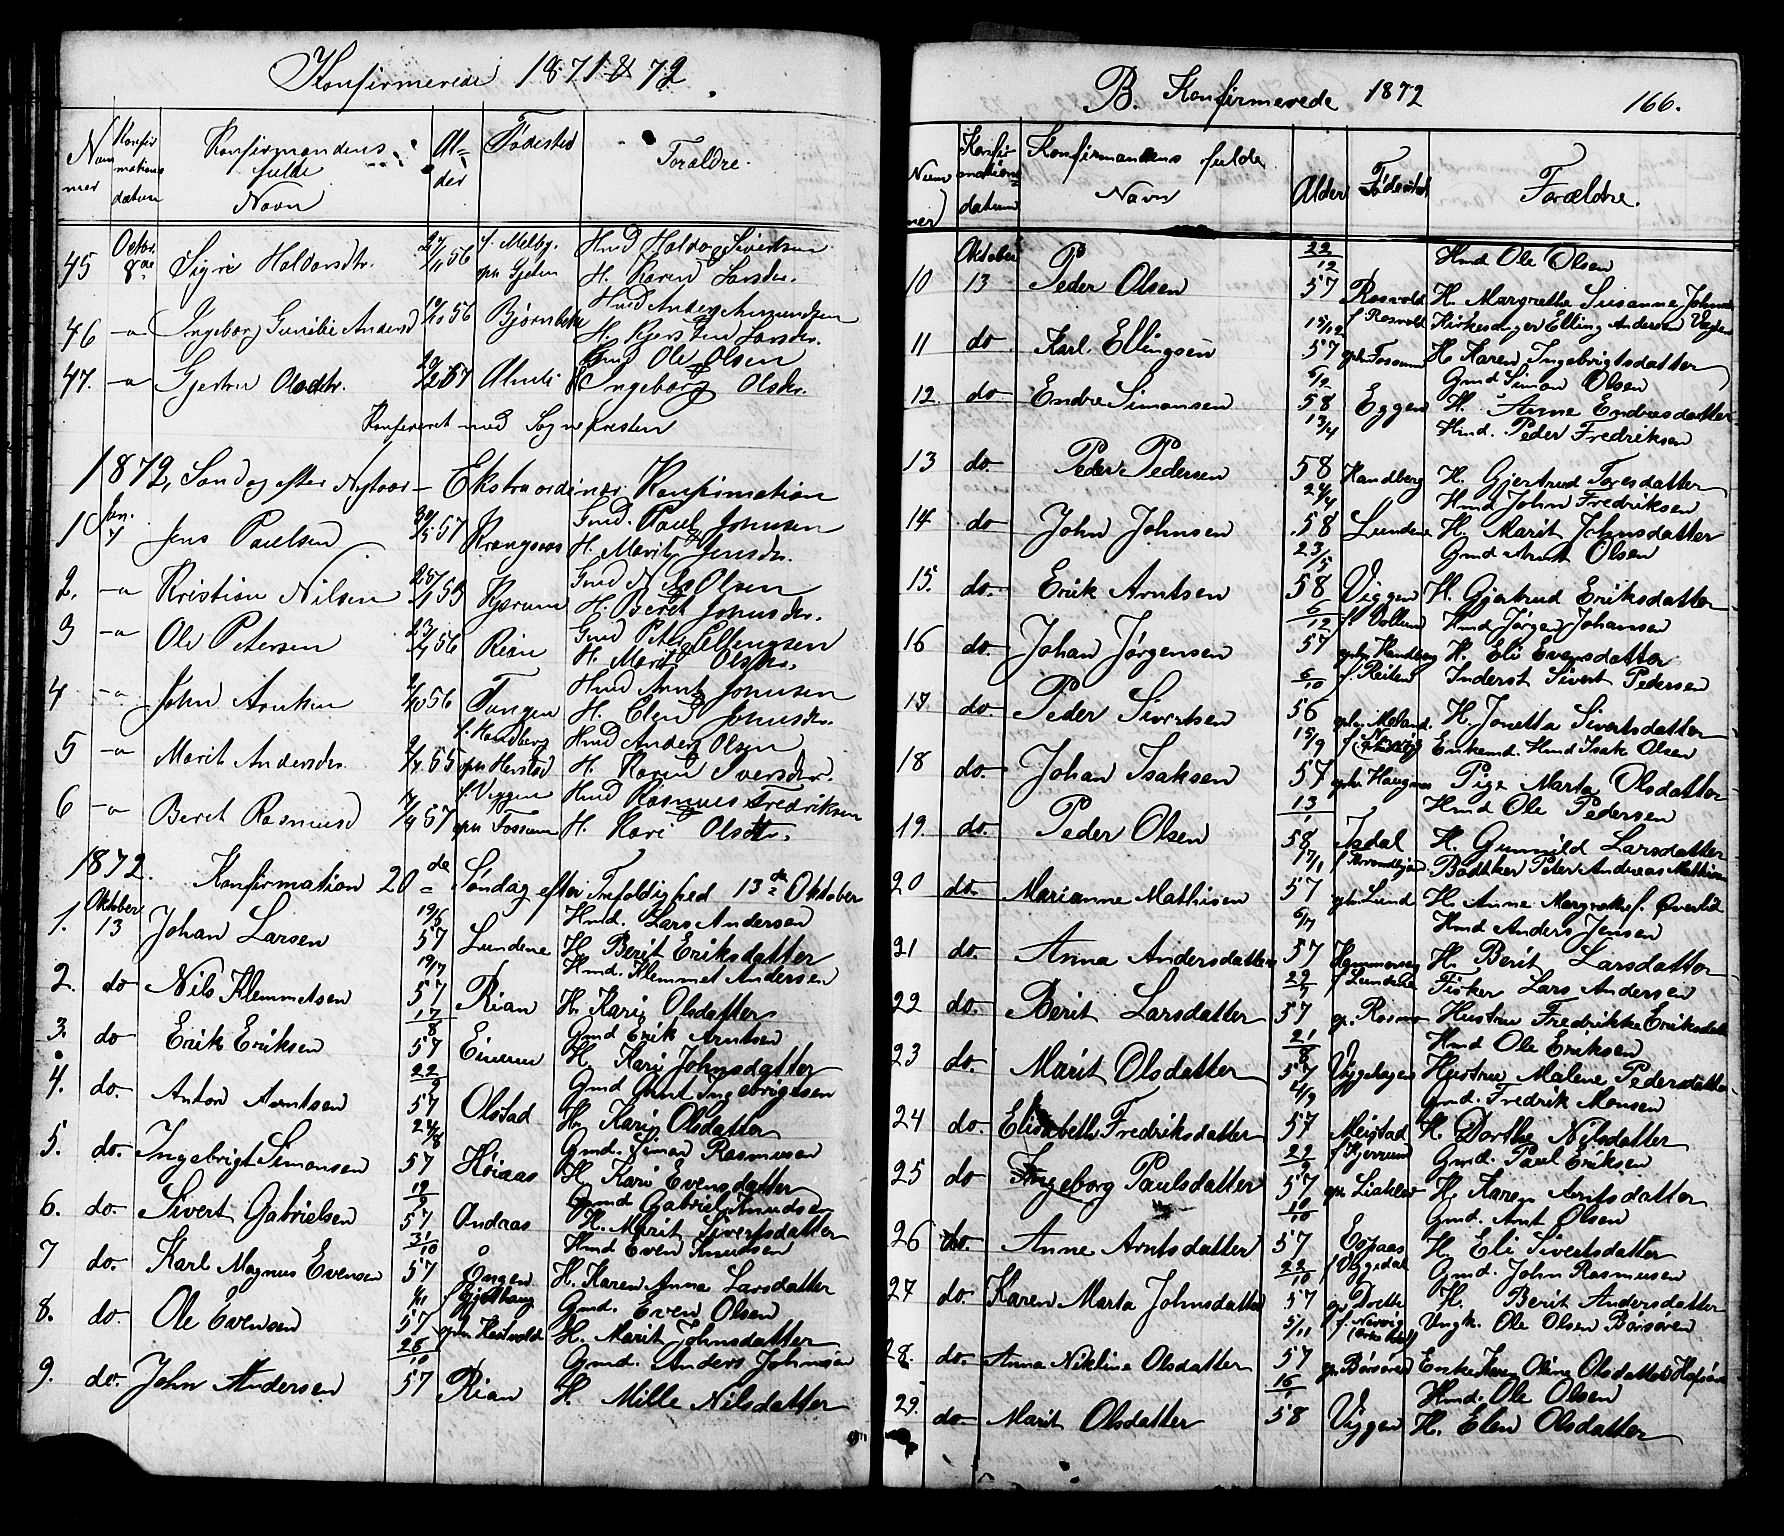 Konfirmerede 1871 & 72.
Nummer Konfirmations datum Konfirmandens fulde Navn Alder Fødested Forældre.
45 Octor. 8de Sigri Haldorsdtr. 27/11 56 f. Melby. Hmd Haldor Sivertsen
opn Gjeten H. Karen Larsdr.
46 -"- Ingeborg Gurine Andersd 19/10 56 Bjørnbek Hmd Anders Amundsen
H. Kjersten Larsdr.
47. -"- Gjertru Olsdtr. 57 Gmd Ole Olsen
H. Ingeborg Olsdr.
Konfirmeret med Sognepresten
1872, Søndag efter Nytaar - Ekstraordinær Konfirmation
1 Jan. 7 Jens Paulsen 57 Krangsaas Gmd. Paul Johnsen
H. Marit Jensdr.
2. -"- Kristian Nilsen Kjerum Gmd Nils Olsen
H. Beret Johnsdr.
3 -"- Ole Petersen 56 Rian Gmd Peter Ellingsen
H. Marit Olsdr.
4 -"- John Arntsen 56 Tangen Hmd Arnt Johnsen
H. Elen Johnsdr.
5 -"- Marit Andersdr. 55 f. Handberg Hmd Anders Olsen
opn Herstad H. Karen Iversdr.
6 -"- Beret Rasmusd 57 f. Viggen Hmd Rasmus Fredriksen
opn Fossum H. Kari Olsdtr.
1872. Konfirmation 20de Søndag efter Trefoldighed 13de Oktober
1. Oktober 13 Johan Larsen 19/5 57 Lundene Hmd. Lars Andersen
H. Berit Eriksdatter
2. do Nils Klemmetsen 19/7 57 Rian Hmd. Klemmet Andersen
H. Kari Olsdatter
3. do Erik Eriksen 17/8 57 Einum Gmd Erik Arntsen
H. Kari Johnsdatter
4. do. Anton Arntsen 22/9 57 Olstad Gmd Arnt Ingebrigtsen
H. Kari Olsdatter
5. do. Ingebrigt Simonsen 24/8 57 Høiaas Gmd. Simon Rasmusen
H. Kari Evensdatter
6. do. Sivert Gabrielsen 12/9 57 Andaas Gmd Gabriel Knudsen
H. Marit Sivertsdatter
7 do. Karl Magnus Evensen 31/10 57 Ongen Hmd Even Knudsen
H. Karen Anna Larsdatter
8. do. Ole Evensen 57 Gmd. Even Olsen
H. Marit Johnsdatter
9. do. John Andersen 26/10 57 Rian Gmd. Anders Johnsen
H. Mille Nilsdatter
B. Konfirmerede 1872 166.
Nummer Konfirmations datum Konfirmandens fulde Navn Alder Fødested Forældre.
10 Oktober 13 Peder Olsen 22/12 57 Rosvold Hmd Ole Olsen
H. Margrethe Susanne Johnsd
11 do Karl Ellingsen 15/12 57 f Rosvold Kirkesanger Elling Andersen
opn Fossum H. Karen Ingebrigtsdatter
12. do Endre Simonsen 6/2 58 Eggen Gmd Simon Olsen
H. Anne Endresdatter
13 do Peder Pedersen 13/4 58 Handberg Hmd. Peder Fredriksen
H. Gjertrud Toresdatter
14 do John Johnsen 24/4 58 Lundene Hmd John Fredriksen
H. Marit Johnsdatter
15. do. Erik Arntsen 23/5 58 Viggen Gmd Arnt Olsen
H. Gjertrud Eriksdatter
16 do. Johan Jørgensen 6/12 57 f Vollum Hmd Jørgen Johansen
opn Handberg H. Eli Evensdatter
17 do. Peder Sivertsen 6/10 56 f. Reiten Inderst Sivert Pedersen
opn. Meland. H. Jonetta Sivertsdatter
18 do. Johan Isaksen 15/9 57 Enkemd. Hmd Isak Olsen
opn. Haugnes Pige Marta Olsdatter
19. do. Peder Olsen 13/1 58 Asdal Hmd Ole Pedersen
H. Gunnild Larsdatter
20 do. Marianne Mathisen 17/1 57 f Trondhjem Bødtker Peter Andreas Mathisen
opn Lund H. Anne Margrethe f. Øverlid
21 do. Anna Andersdatter 6/7 57 Hammeraas Hmd Anders Jensen
H. Berit Larsdatter
22 do. Berit Larsdatter 22/7 57 f Lundene Fisker Lars Andersen
op. Rosmo Hustru Fredrikke Eriksdatter
23 do. Marit Olsdatter 21/8 57 Viggehagen Hmd Ole Eriksen
Hustru Malene Pedersdatter
24 do Elisabeth Fredriksdatter 4/9 57 Meistad Gmd. Fredrik Monsen
H. Dorthe Nilsdatter
25 do Ingeborg Paulsdatter 22/9 57 f Kjerrum Gmd. Paul Eriksen
opn Lisklev H. Karen Arntsdatter
26 do. Anne Arntsdatter 10/10 57 Espaas Gmd. Arnt Olsen
H. Eli Sivertsdatter
27 do. Karen Marta Johnsdatter 22/10 57 f Viggedal Gmd. John Rasmusen
H. Berit Andersdatter
28. do. Anna Nikline Olsdatter 5/11 57 f. Nervig Ungk. Ole Olsen Børsøren
op. Børsøren Enke Karen Oline Olsdatter
29. do Marit Olsdatter 16/1 58 Viggen Hmd. Ole Olsen
H. Elen Olsdatter